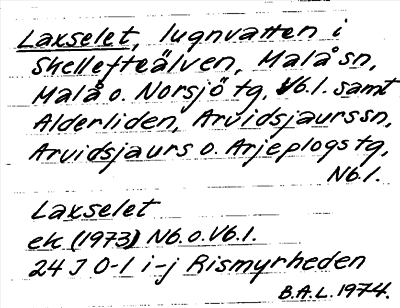 Laxselet, lugnvatten i
Skellefteälven, Malå sn,
Malå o. Norsjö tg, Vb.l. samt
Alderliden, Arvidsjaurs sn,
Arvidsjaurs o. Arjeplogs tg,
Nb.l.
Laxselet
ek (1973) Nb. o. Vb.l.
24 J 0-1 i-j Rismyrheden
B.A.L. 1974.